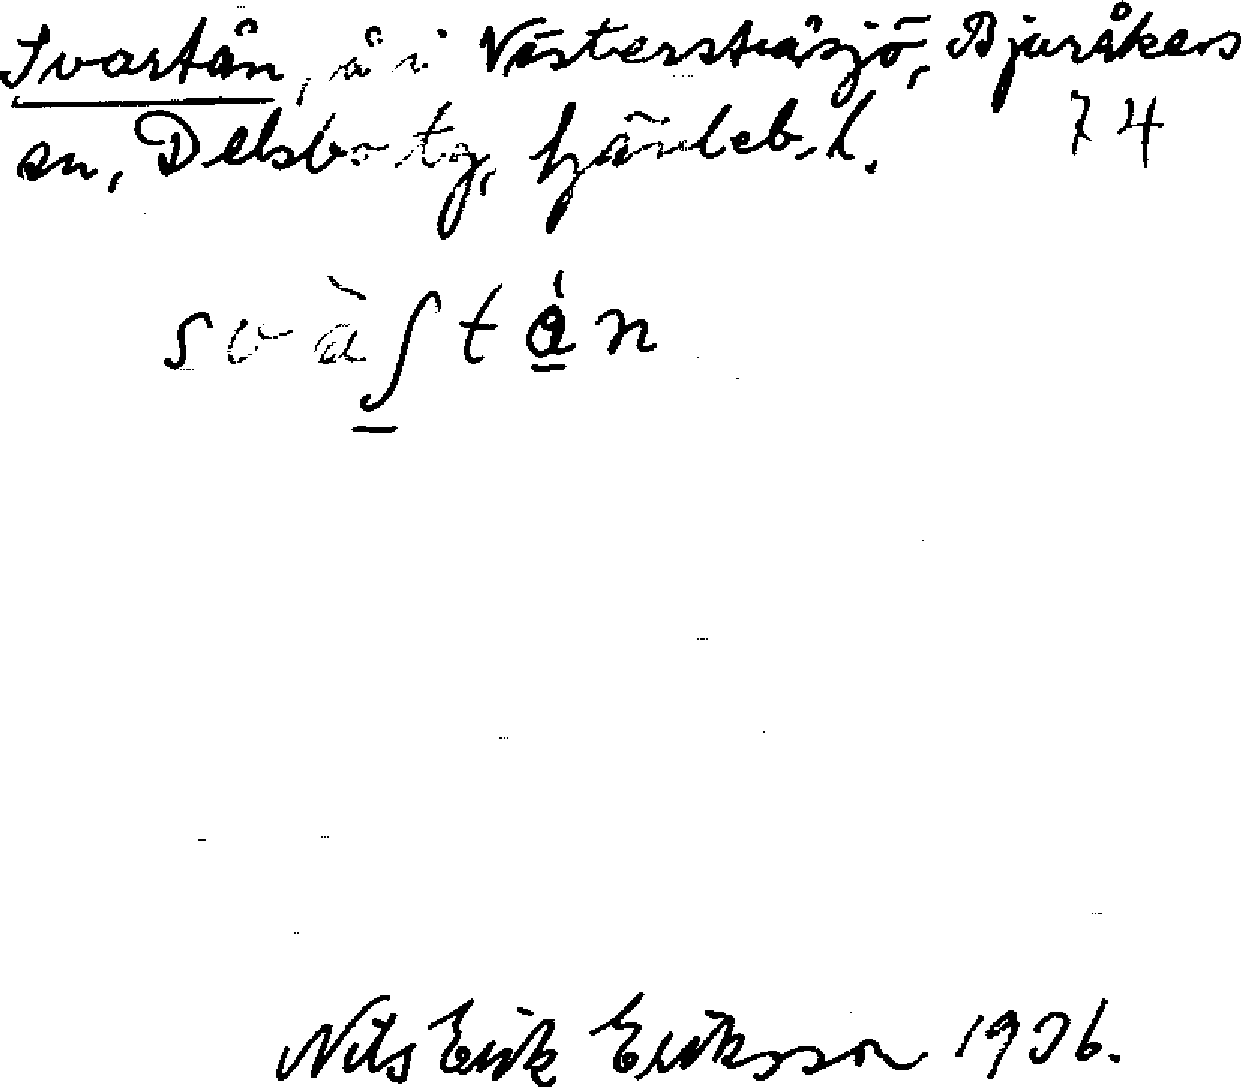 Svartån, å i Västerstråsjö, Bjuråkers
sn, Delsbo tg, Gävleb. l. 74
svàʃtǻn
Nils Erik Eriksson 1936.